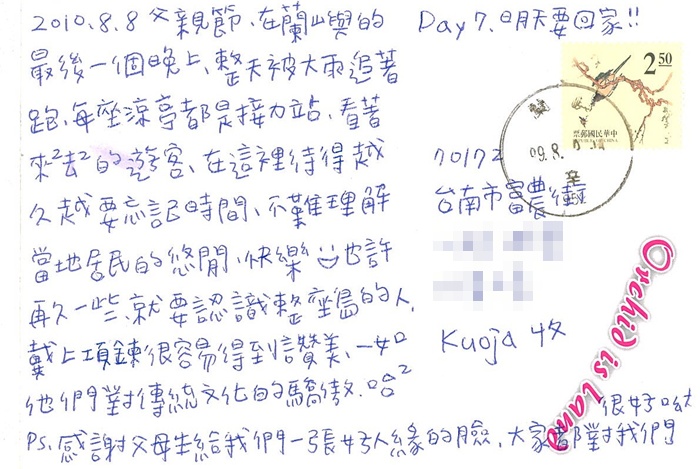 2010.8.8 父親節、在蘭山與的
最後一個晚上、整天被大雨追著
跑、每座涼亭都是接力站、看著
來²去²的遊客、在這裡待得越
久越要忘記時間、不難理解
當地居民的悠閒、快樂 也許
再久一些、就要認識整座島的人、
戴上項鍊很容易得到讚美、一如
他們對傳統文化的驕傲.哈²
PS.感謝父母生給我們一張好人緣的臉、大家都對我們
很好呦
Day 7.明天要回家!!
2 50
中華民國郵票
REPUBLIC OF CHINA
蘭
09.8.
70172
台南市富農街
Kuoja 收
Orchid island